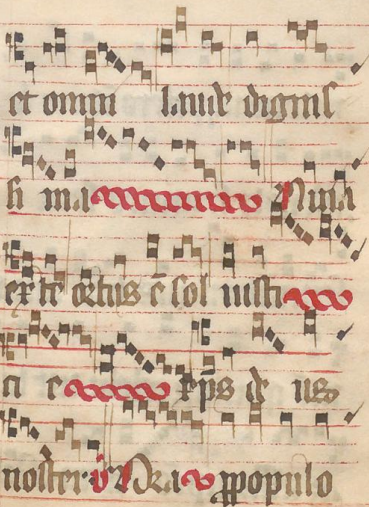 et omni laude digniſ
ſi ma Quia
ex te ortus ē ſol iuſti
ci e xp̄s de us
noſter ℣ Ora ꝓpopulo